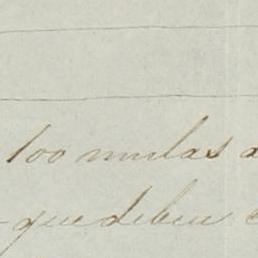 100 mulas a
que deben